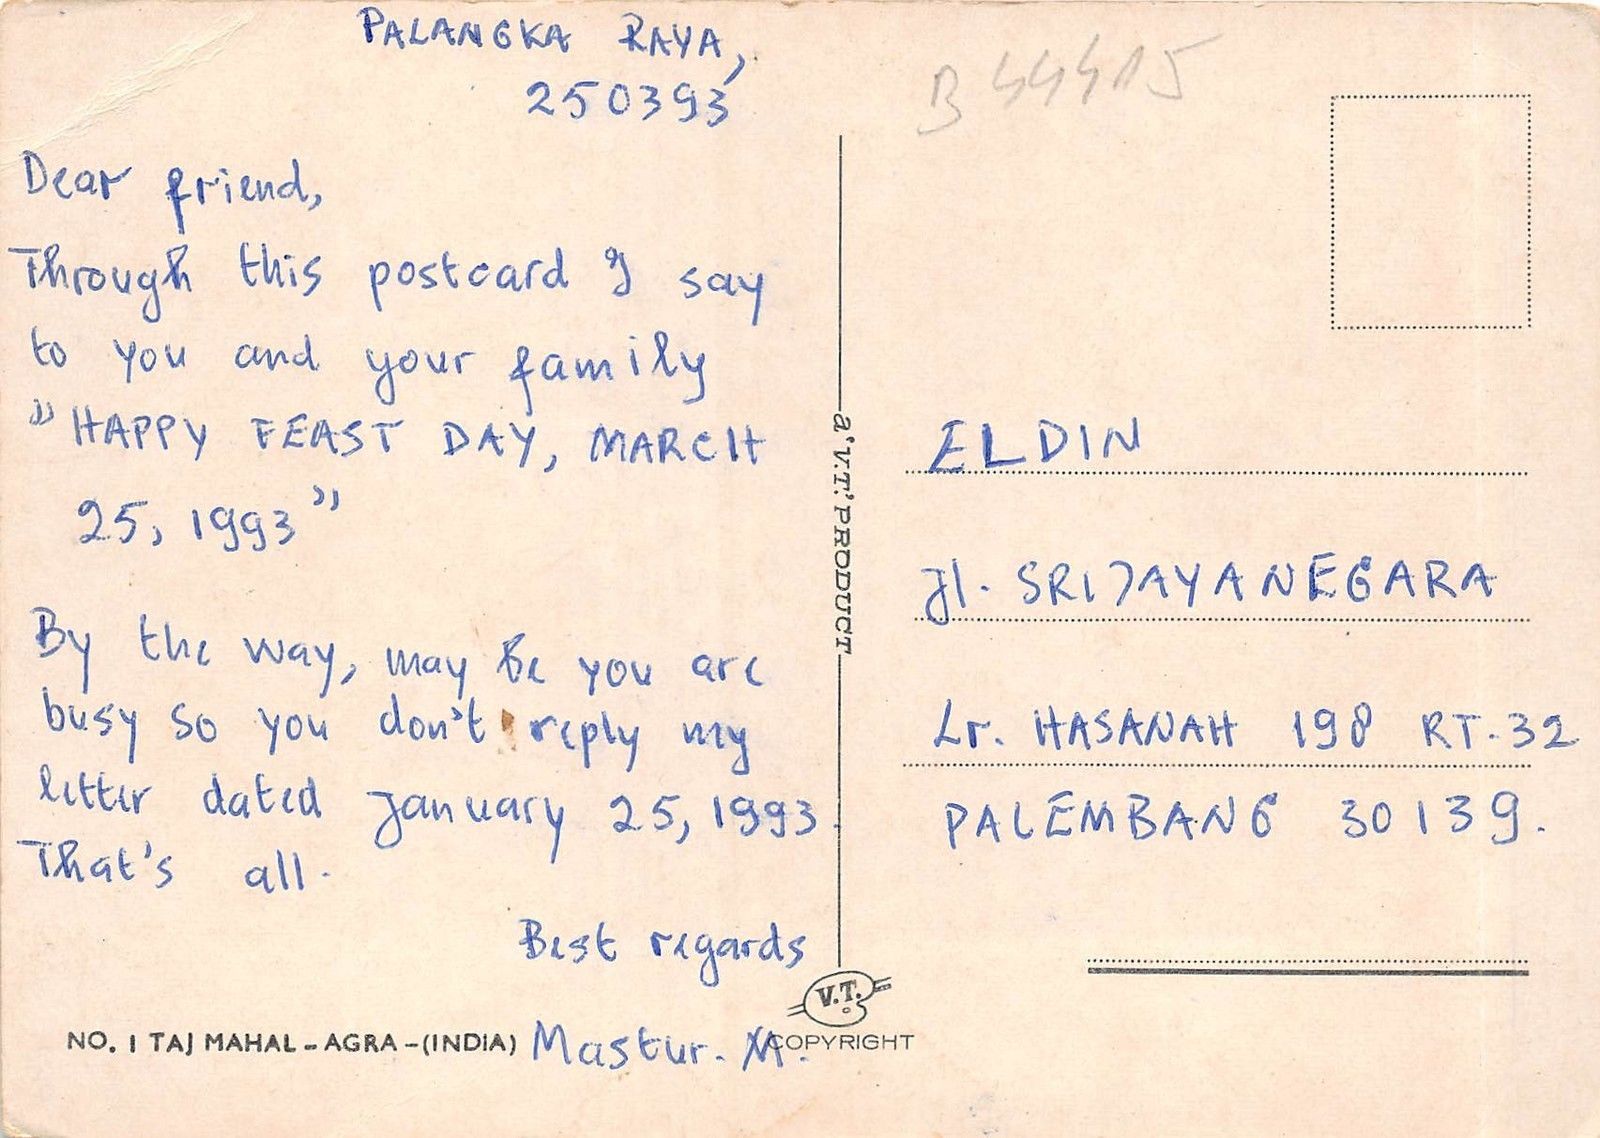 PALANGKA RAYA,
250393
Dear friend,
Through this postcard I say
to you and your family
"HAPPY FEAST DAY, MARCH
25, 1993"
By the way, may be you are
busy so you don't reply my
letter dated January 25, 1993.
That's all.
Best regards
Mastur. M.
NO. 1 TAJ MAHAL - AGRA - (INDIA)
a 'V.T.' PRODUCT
V.T.
COPYRIGHT
B 44415
ELDIN
Jl. SRIJAYANEGARA
Lr. HASANAH 198 RT. 32
PALEMBANG 30139.